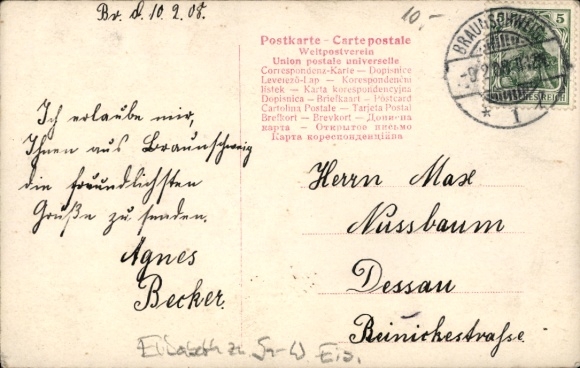 Br. d. 10. 2. 08.
10,-
Postkarte - Carte postale
Weltpostverein
Union postale universelle
Correspondenz-Karte — Dopisnice
Levelező-Lap — Korespondenční
lístek — Karta korespondencyjna
Dopisnica — Briefkaart — Postcard
Cartolina Postale — Tarjeta Postal
Brefkort — Brevkort — Дописна
карта — Открытое письмо
Карта кореспонденційна
BRAUNSCHWEIG
* 1
5
Ich erlaube mir,
Ihnen aus Braunschweig
die freundlichsten
Grüße zu senden.
Agnes
Becker.
Herrn Max
Nussbaum
Dessau
Reinickestraße